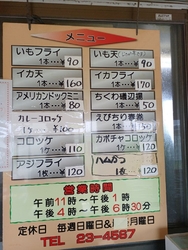 メニュー
いもフライ
1本‥‥¥90
いも天
1本‥‥¥90
イカ天
1本‥‥¥160
イカフライ
1本‥‥¥170
アメリカンドックミニ
1本‥‥¥80
ちくわ磯辺揚
1本‥‥¥50
カレーコロッケ
1ケ‥‥¥100
えびちり春巻
1本‥‥¥50
コロッケ
1ケ‥‥¥110
カボチャコロッケ
1ケ‥‥¥120
アジフライ
1枚‥‥¥120
ハムかつ
1枚‥‥¥120
営業時間
午前11時〜午後1時
午後4時〜午後6時30分
定休日 毎週日曜日& 月曜日
TEL 23-4567